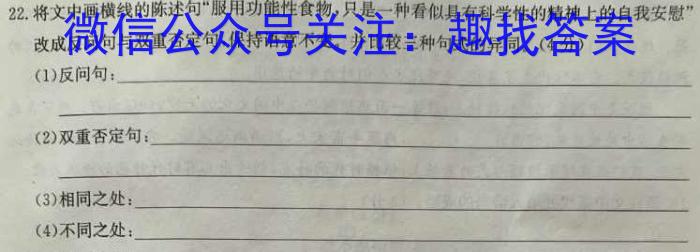 22.将文中画横线的陈述句“服用功能性食物,只是一种看似具有科学性的精神上的自我安慰”
微信公众号关注：趣找答案
改成反问句与双重否定句,保持语意不变,并比较三种句式的异同。(4分)
(1)反问句:
(2)双重否定句:
(3)相同之处:
(4)不同之处: